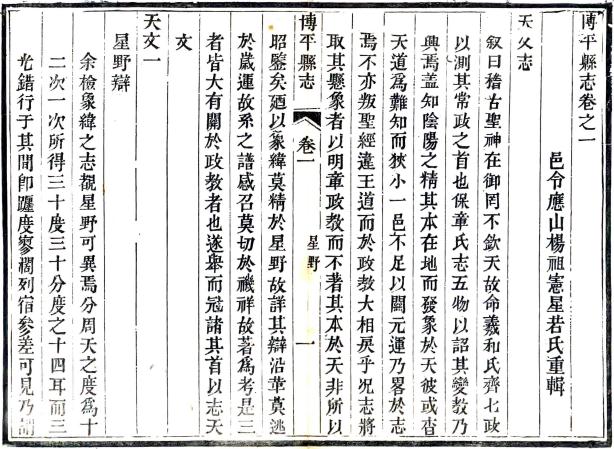 博平縣志卷之一
邑令應山楊祖憲星若氏重輯
天文志
叙曰稽古聖神在御罔不欽天故命羲和氏齊七政
以測其常政之首也保章氏志五物以詔其變教乃
興焉蓋知陰陽之精其本在地而發象於天彼或杳
天道為難知而狹小一邑不足以關元運乃畧於志
焉不亦叛聖經違王道而於政教大相戾乎况志將
取其懸象者以明章政教而不著其本於天非所以
博平縣志
卷一
星野
一
昭鑒矣廼以象緯莫精於星野故詳其辯沿革莫逃
於歲運故系之譜感召莫切於禨祥故著為考是三
者皆大有關於政教者也遂舉而冠諸其首以志天
文
天文一
星野辯
余檢象緯之志覩星野可異焉分周天之度為十
二次一次所得三十度三十分度之十四耳而三
光錯行于其間卽躔度寥濶列宿參差可見乃謂